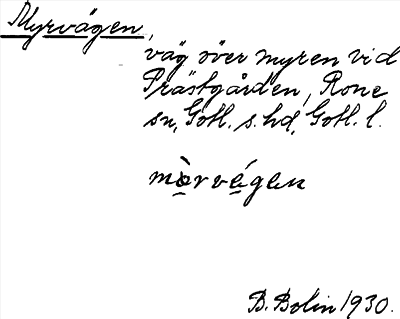 Myrvägen,
väg över myren vid
Prästgården, Rone
sn, Gotl. s. hd, Gotl. l.
mòrvégen
B. Bolin 1930.